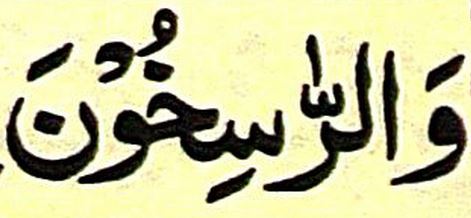 وَالرّٰسِخُوْنَ